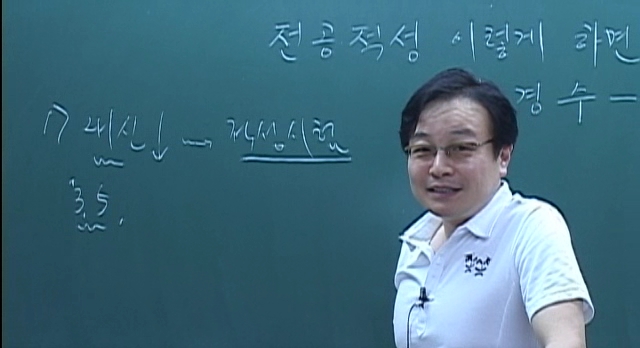 전공적성 이렇게 하면
경수
1) 내신↓ ㅡ 적성시험
3.5